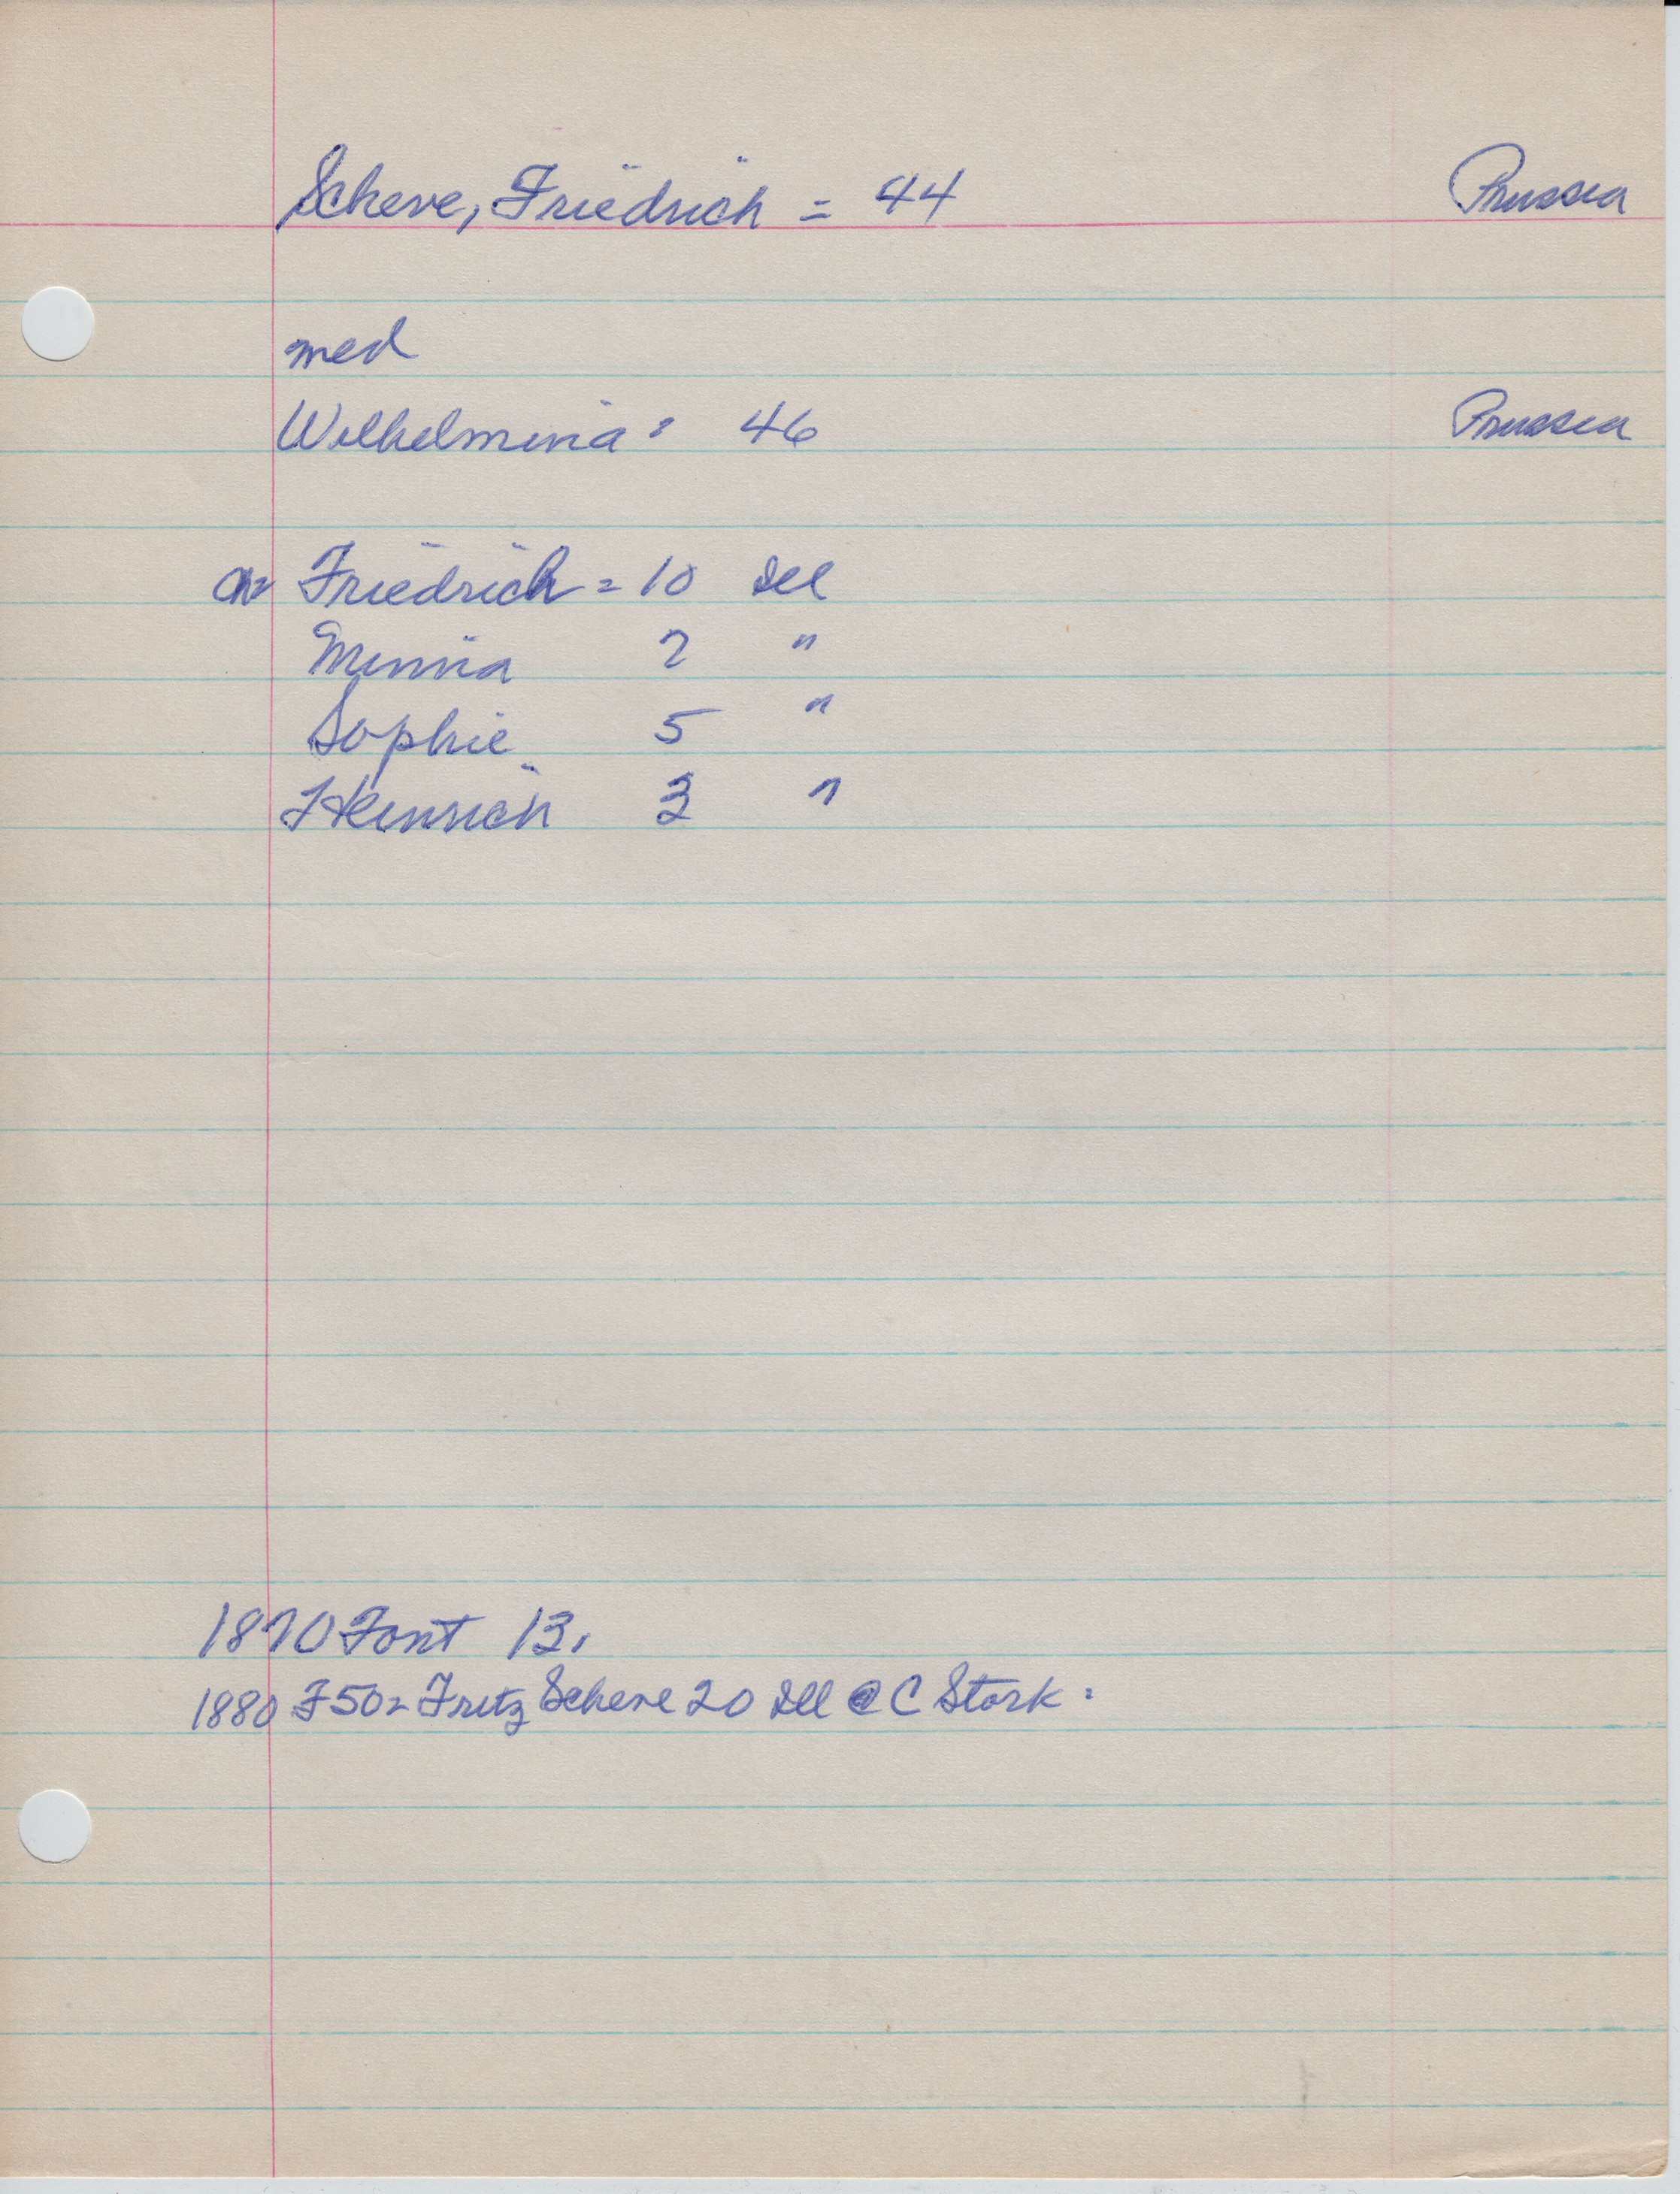 Scheve, Friedrich = 44 Prussia
med
Wilhelmina = 46 Prussia
ch= Friedrich = 10 Ill
Minna 7 "
Sophie 5 "
Heinrich 3 "
1870 Font 13.
1880 F50= Fritz Scheve 20 Ill @ C Stork.